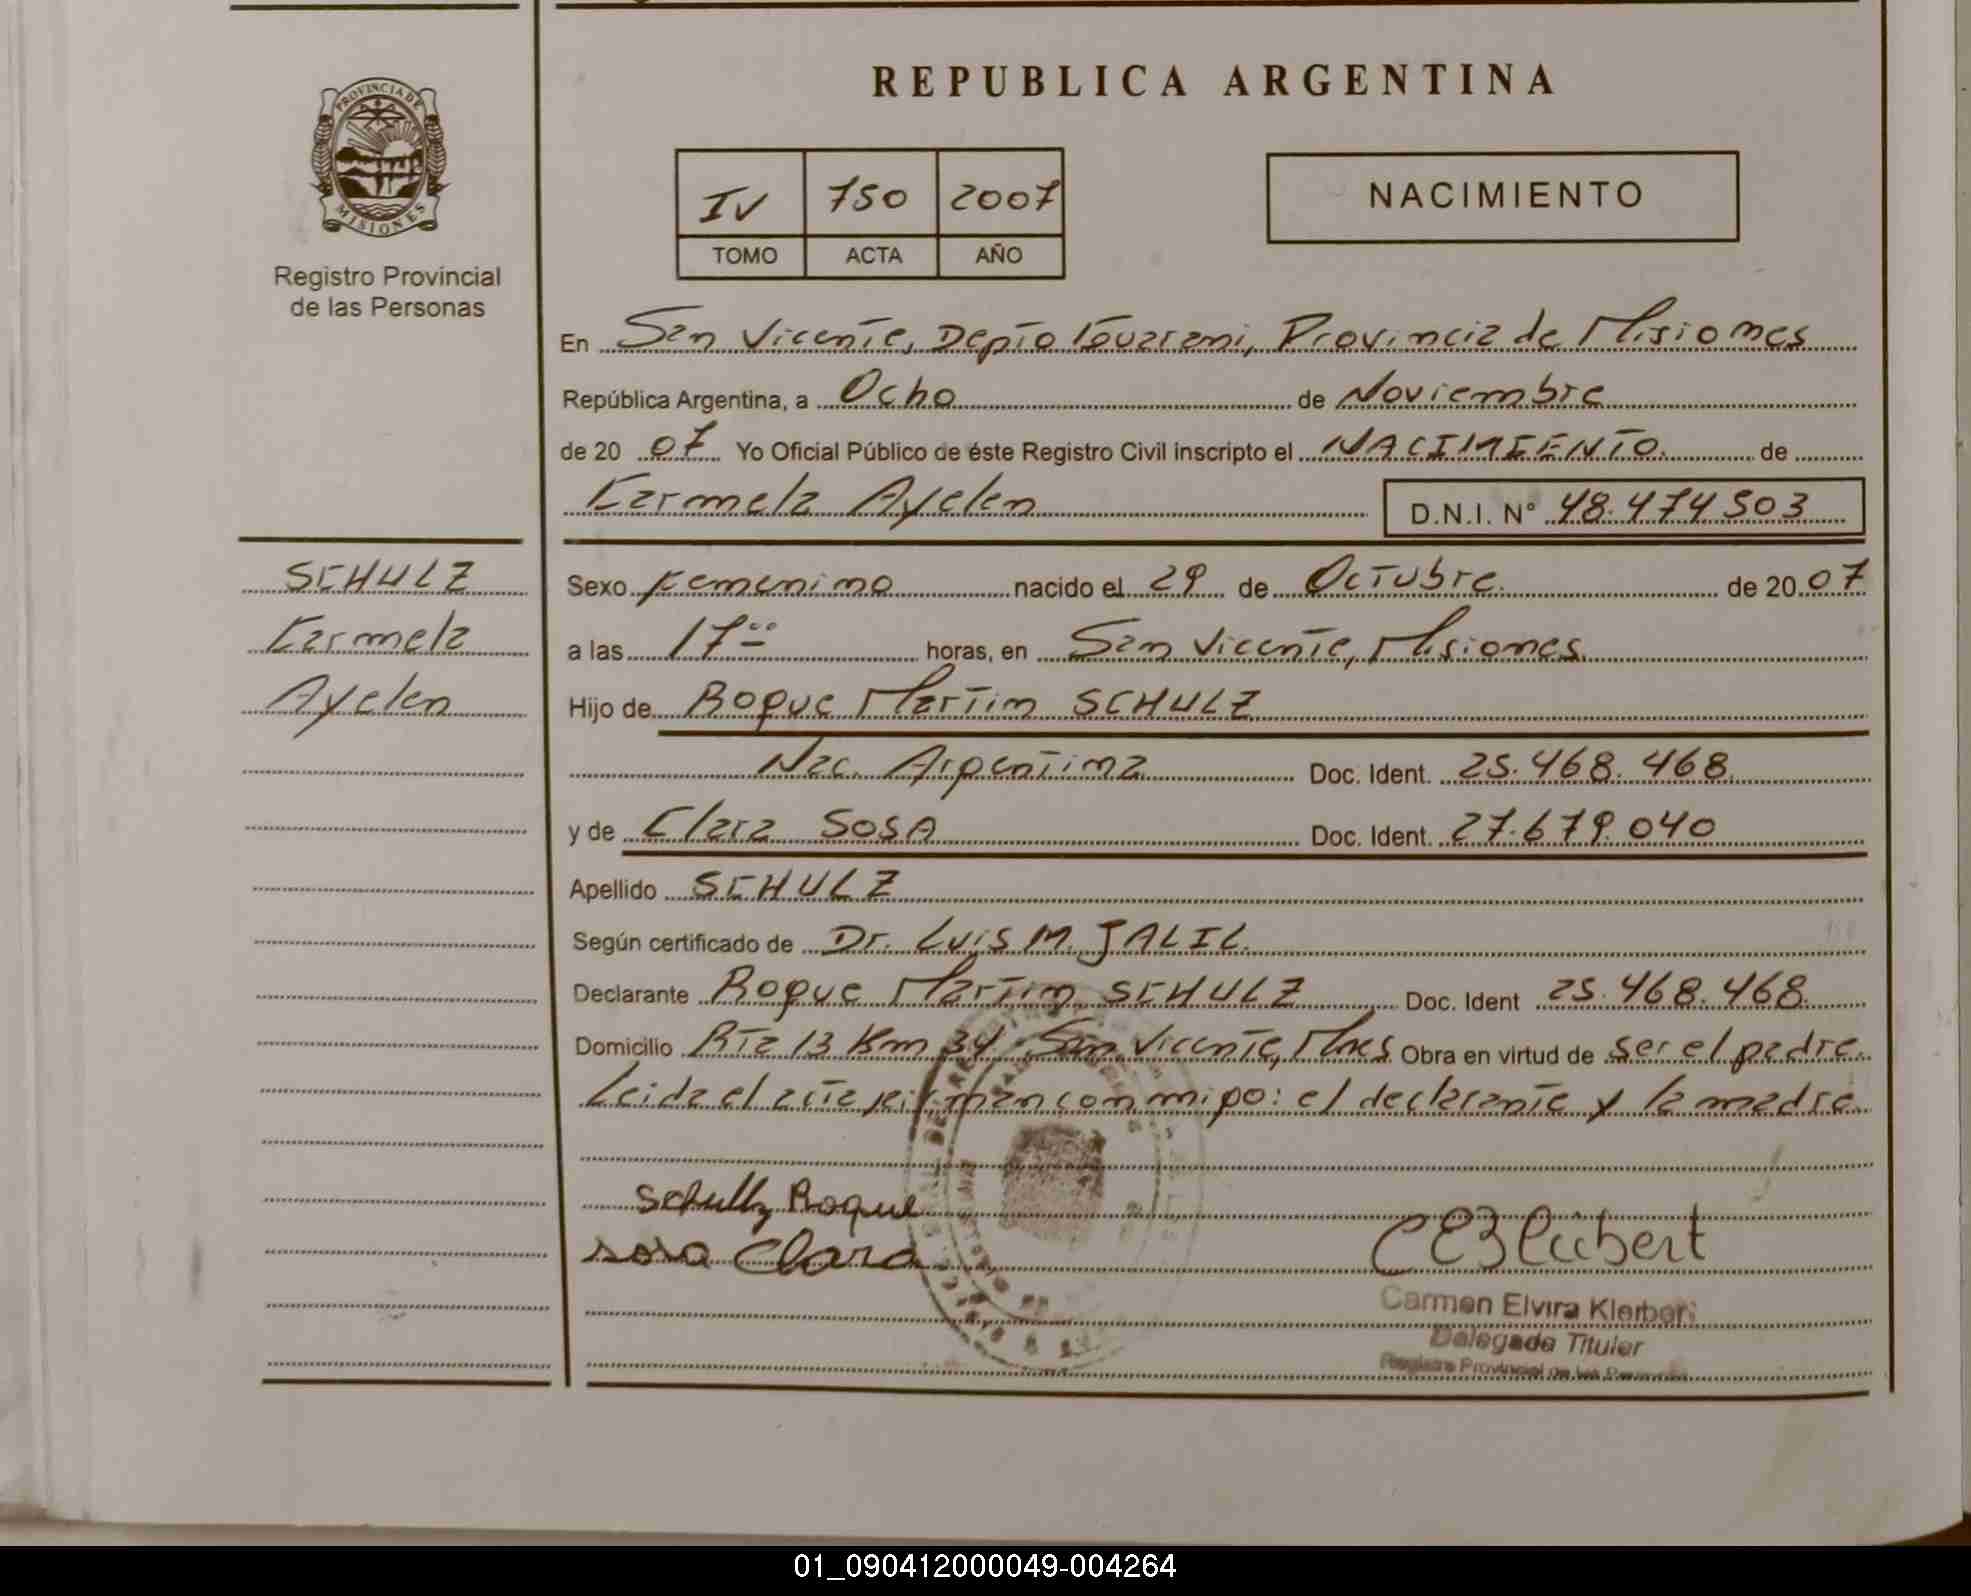 REPUBLICA ARGENTINA
PROVINCIA DE
MISIONES
Registro Provincial
de las Personas
IV 750 2007
TOMO ACTA AÑO
NACIMIENTO
En San Vicente, Depto Guarani, Provincia de Misiones
República Argentina, a Ocho de Noviembre
de 20 07 Yo Oficial Público de éste Registro Civil inscripto el NACIMIENTO. de
Karmela Ayelen D.N.I. N° 48.474503
SCHULZ
Karmela
Ayelen
Sexo Femenino nacido el 29 de Octubre. de 20 07
a las 17 00 horas, en San Vicente, Misiones.
Hijo de Roque Martin SCHULZ
Nac. Argentina Doc. Ident. 25.468.468.
y de Clara SOSA Doc. Ident. 27.679.040
Apellido SCHULZ
Según certificado de Dr. Luis M. JALIL.
Declarante Roque Martin SCHULZ Doc. Ident 25.468.468.
Domicilio Rta 13 Km 34 San Vicente, Mnes Obra en virtud de ser el padre.
Leida el acta firman conmigo: el declarante y la madre.
Schulz Roque
Sosa Clara
Carmen Elvira
Delegada Titular
Registro Provincial de las Personas
01_090412000049-004264